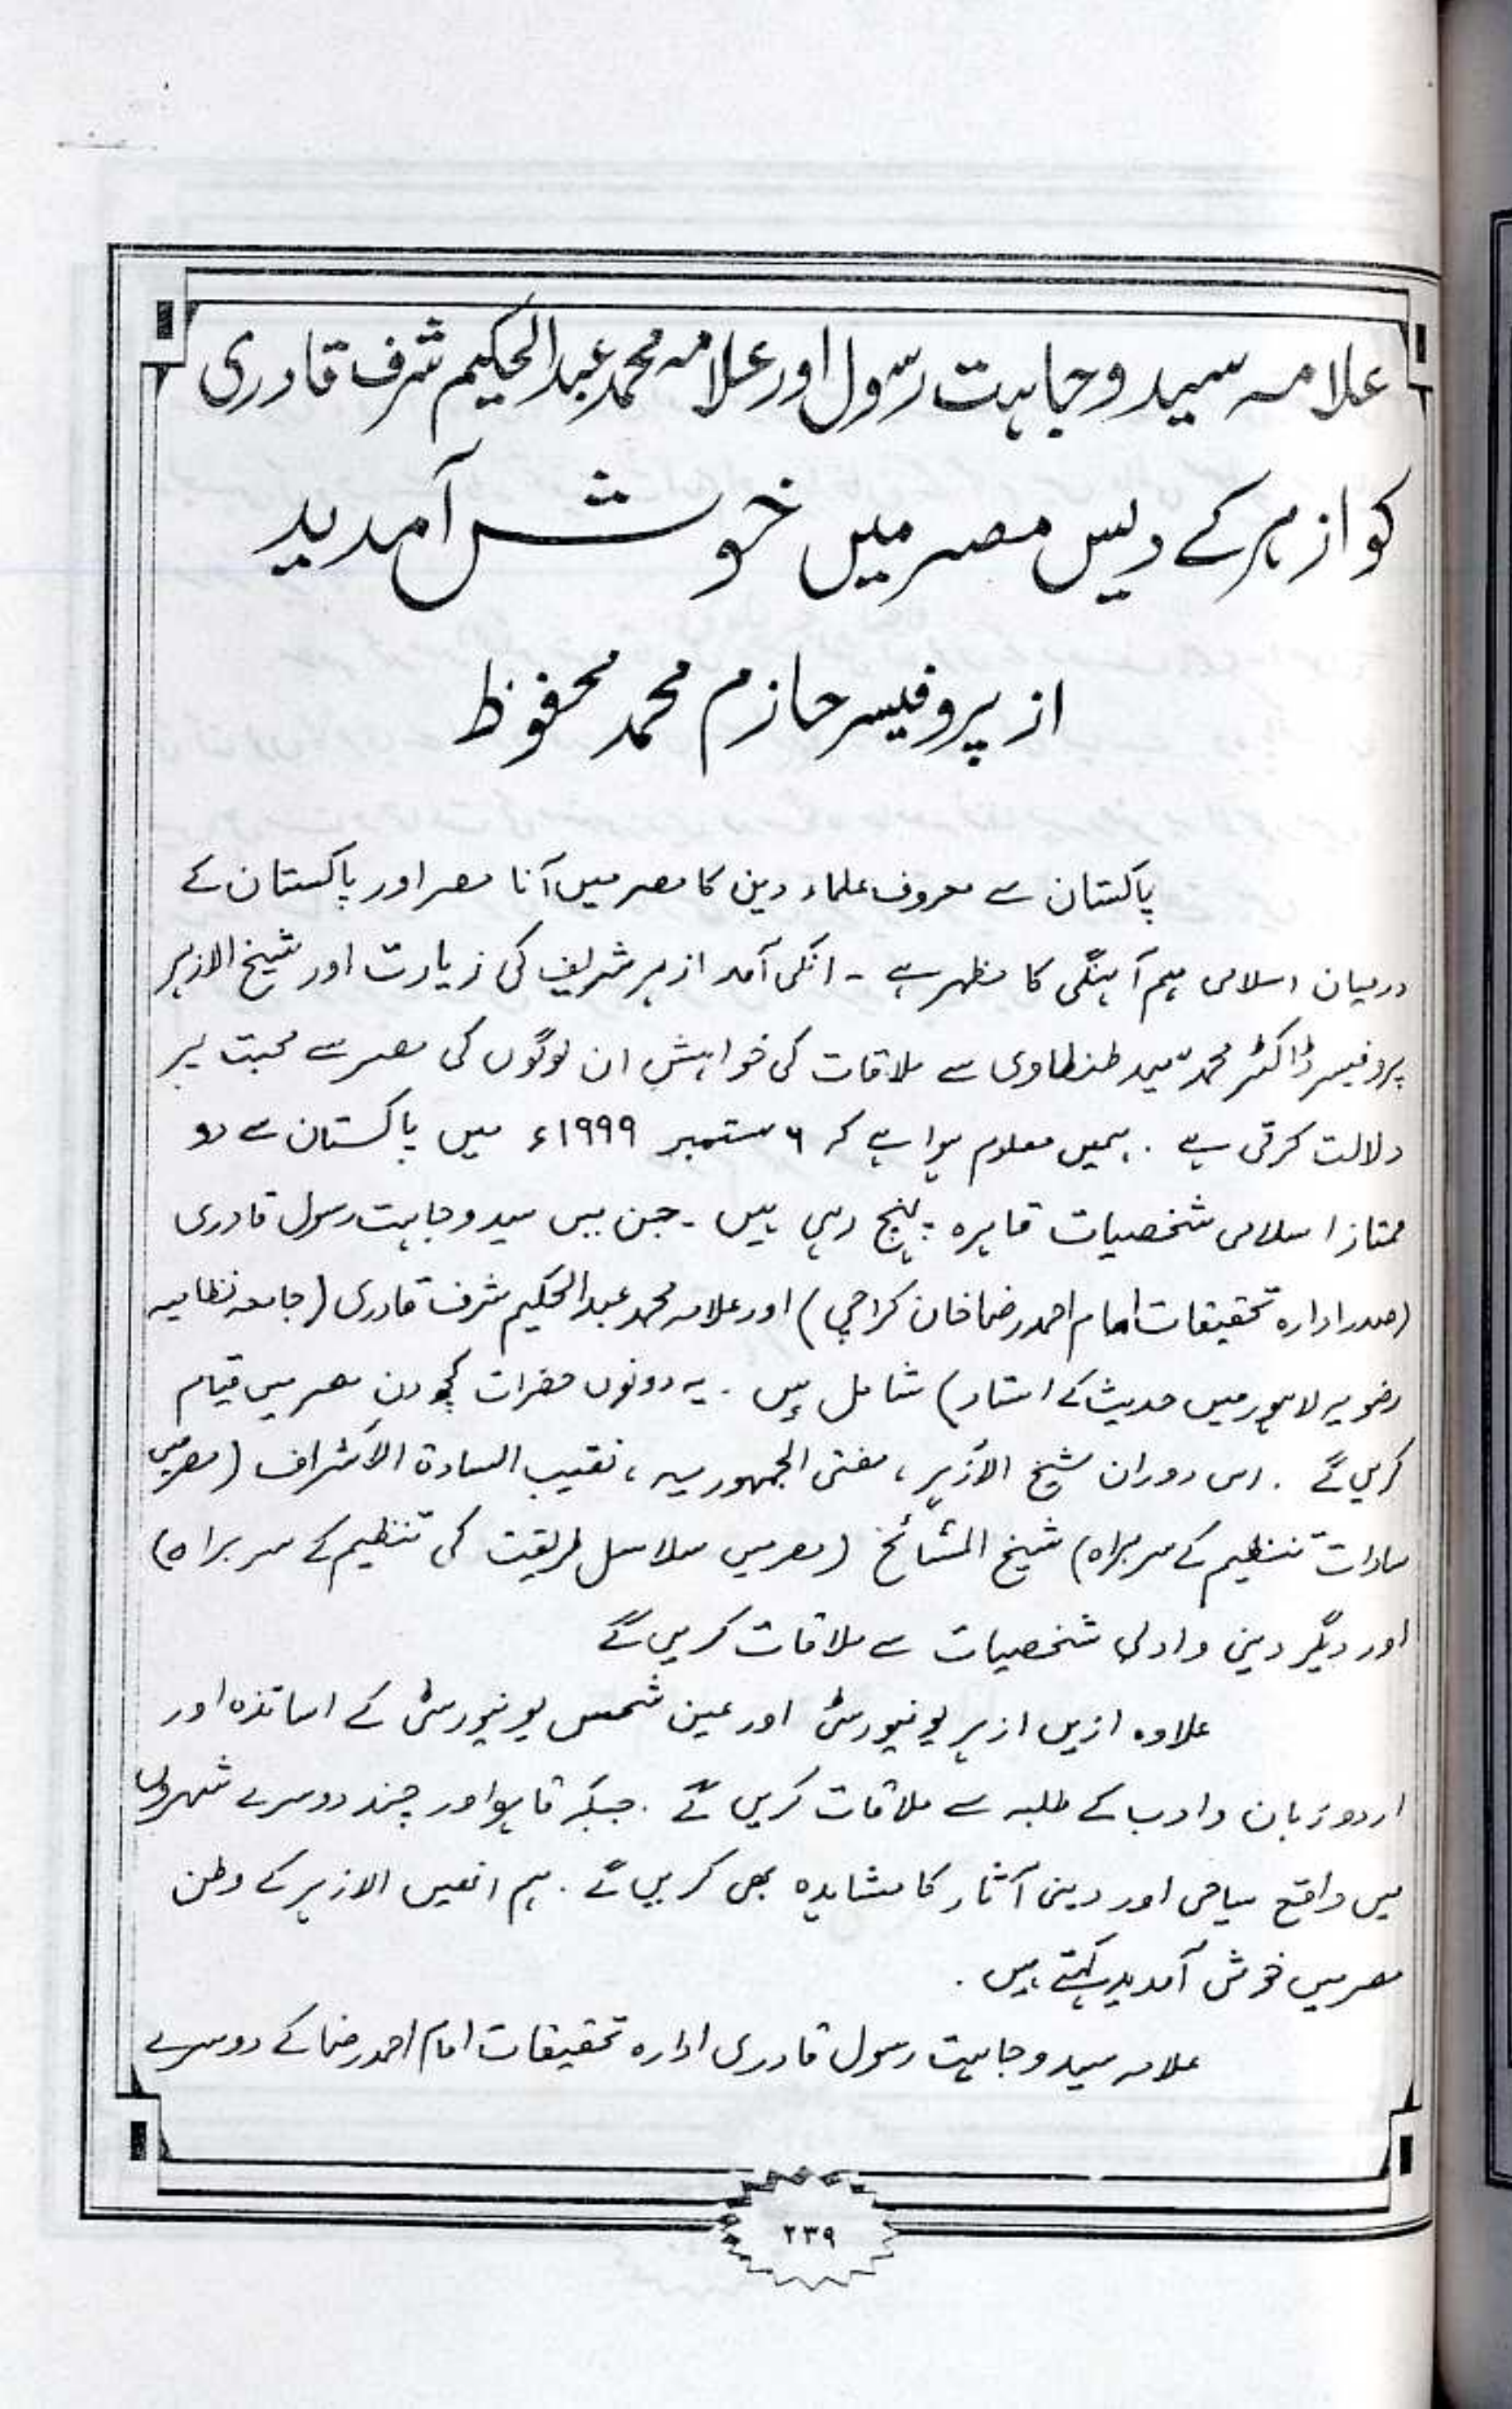 علامہ سید وجاہت رسول اور علامہ محمد عبدالحکیم شرف قادری
کو ازہر کے دیس مصر میں خوش آمدید
از پروفیسر حازم محمد محفوظ
پاکستان سے معروف علماء دین کا مصر میں آنا مصر اور پاکستان کے
درمیان اسلامی ہم آہنگی کا مظہر ہے ۔ انکی آمد ازہر شریف کی زیارت اور شیخ الازہر
پروفیسر ڈاکٹر محمد سید طنطاوی سے ملاقات کی خواہش ان لوگوں کی مصر سے محبت پر
دلالت کرتی ہے ۔ ہمیں معلوم ہوا ہے کہ ٦ ستمبر ١٩٩٩ء میں پاکستان سے دو
ممتاز اسلامی شخصیات قاہرہ پہنچ رہی ہیں ۔ جن میں سید وجاہت رسول قادری
(صدر ادارہ تحقیقات امام احمد رضا خان کراچی) اور علامہ محمد عبدالحکیم شرف قادری (جامعہ نظامیہ
رضویہ لاہور میں حدیث کے استاد) شامل ہیں ۔ یہ دونوں حضرات کچھ دن مصر میں قیام
کریں گے ۔ اس دوران شیخ الأزہر ، مفتی الجمہوریہ ، نقیب السادۃ الأشراف (مصر میں
سادات تنظیم کے سربراہ) شیخ المشائخ (مصر میں سلاسل طریقت کی تنظیم کے سربراہ)
اور دیگر دینی و ادبی شخصیات سے ملاقات کریں گے
علاوہ ازیں ازہر یونیورسٹی اور عین شمس یونیورسٹی کے اساتذہ اور
اردو زبان و ادب کے طلبہ سے ملاقات کریں گے ۔ جبکہ قاہرہ اور چند دوسرے شہروں
میں واقع سیاحی اور دینی آثار کا مشاہدہ بھی کریں گے ۔ ہم انھیں الازہر کے وطن
مصر میں خوش آمدید کہتے ہیں ۔
علامہ سید وجاہت رسول قادری ادارہ تحقیقات امام احمد رضا کے دوسرے
٢٣٩